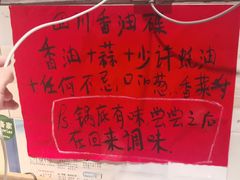 四川香油碟
香油+蒜+少许蚝油
+任何不忌口の葱、香菜、
锅底有味尝尝之后
在回来调味.